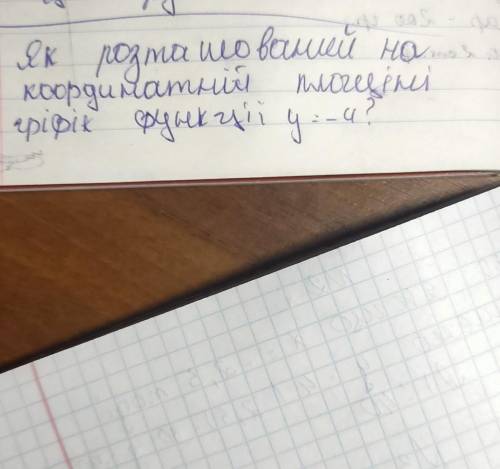 Як розташований на
координатній площині
графік функції y = -4?